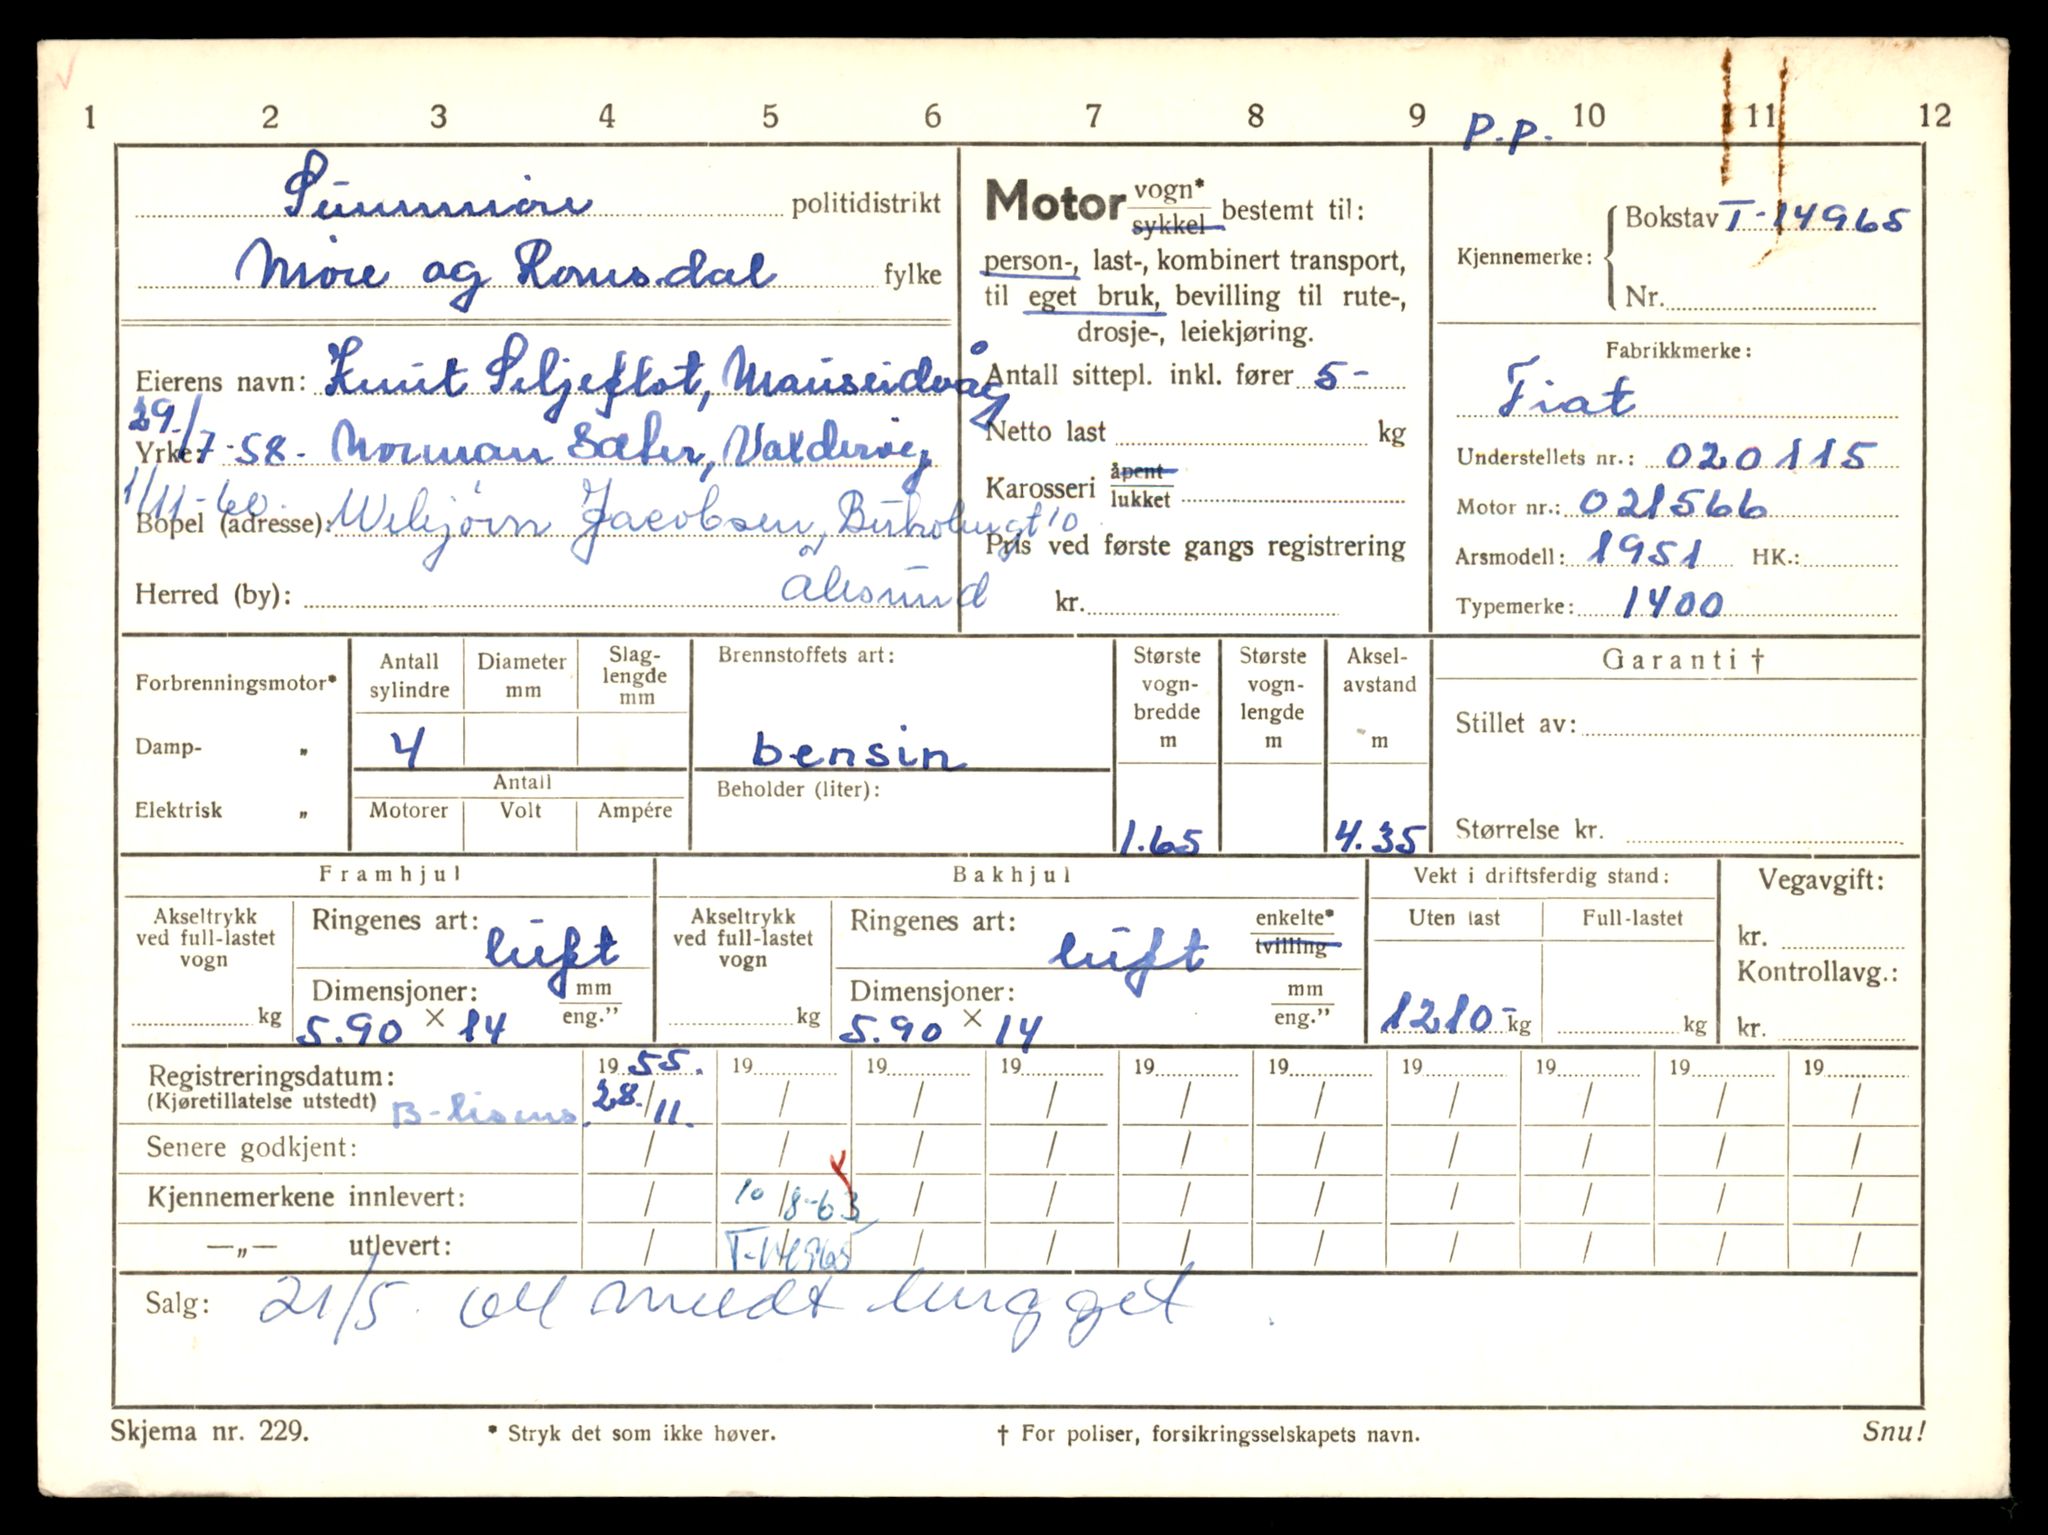 1 2 3 4 5 6 7 8 9 10 11 12
P.P.
Sunnmøre politidistrikt
Møre og Romsdal fylke
Eierens navn: Knut Seljeflot, Mauseidvåg
29/7-58. Norman Sæter, Valdervåg
Yrke:
1/11-60. Jacobsen,
Bopel (adresse):
Ålesund
Herred (by):
Motor vogn* / sykkel bestemt til:
person-, last-, kombinert transport,
til eget bruk, bevilling til rute-,
drosje-, leiekjøring.
Antall sittepl. inkl. fører 5-
Netto last kg
Karosseri åpent / lukket
Pris ved første gangs registrering
kr.
Kjennemerke: Bokstav T-14965
Nr.
Fabrikkmerke:
Fiat
Understellets nr.: 020115
Motor nr.: 021566
Årsmodell: 1951 HK.:
Typemerke: 1400
Forbrenningsmotor*
Damp- „
Elektrisk „
Antall sylindre Diameter mm Slag-lengde mm
4
Antall
Motorer Volt Ampére
Brennstoffets art:
bensin
Beholder (liter):
Største vogn-bredde m
1.65
Største vogn-lengde m
Aksel-avstand m
4.35
Garanti †
Stillet av:
Størrelse kr.
Framhjul
Akseltrykk ved full-lastet vogn
kg
Ringenes art: luft
Dimensjoner: mm / eng.”
5.90 × 14
Bakhjul
Akseltrykk ved full-lastet vogn
kg
Ringenes art: luft enkelte* / tvilling
Dimensjoner: mm / eng.”
5.90 × 14
Vekt i driftsferdig stand:
Uten last Full-lastet
1210- kg kg
Vegavgift:
kr.
Kontrollavg.:
kr.
Registreringsdatum: 19 55. 19 19 19 19 19 19 19 19 19
(Kjøretillatelse utstedt) B-lisens. 28./11. / / / / / / / / /
Senere godkjent: / / / / / / / / / /
Kjennemerkene innlevert: / 10/8-63 / / / / / / / /
—„— utlevert: / T-14965 / / / / / / / /
Salg: 21/5.
Skjema nr. 229. * Stryk det som ikke høver. † For poliser, forsikringsselskapets navn. Snu!